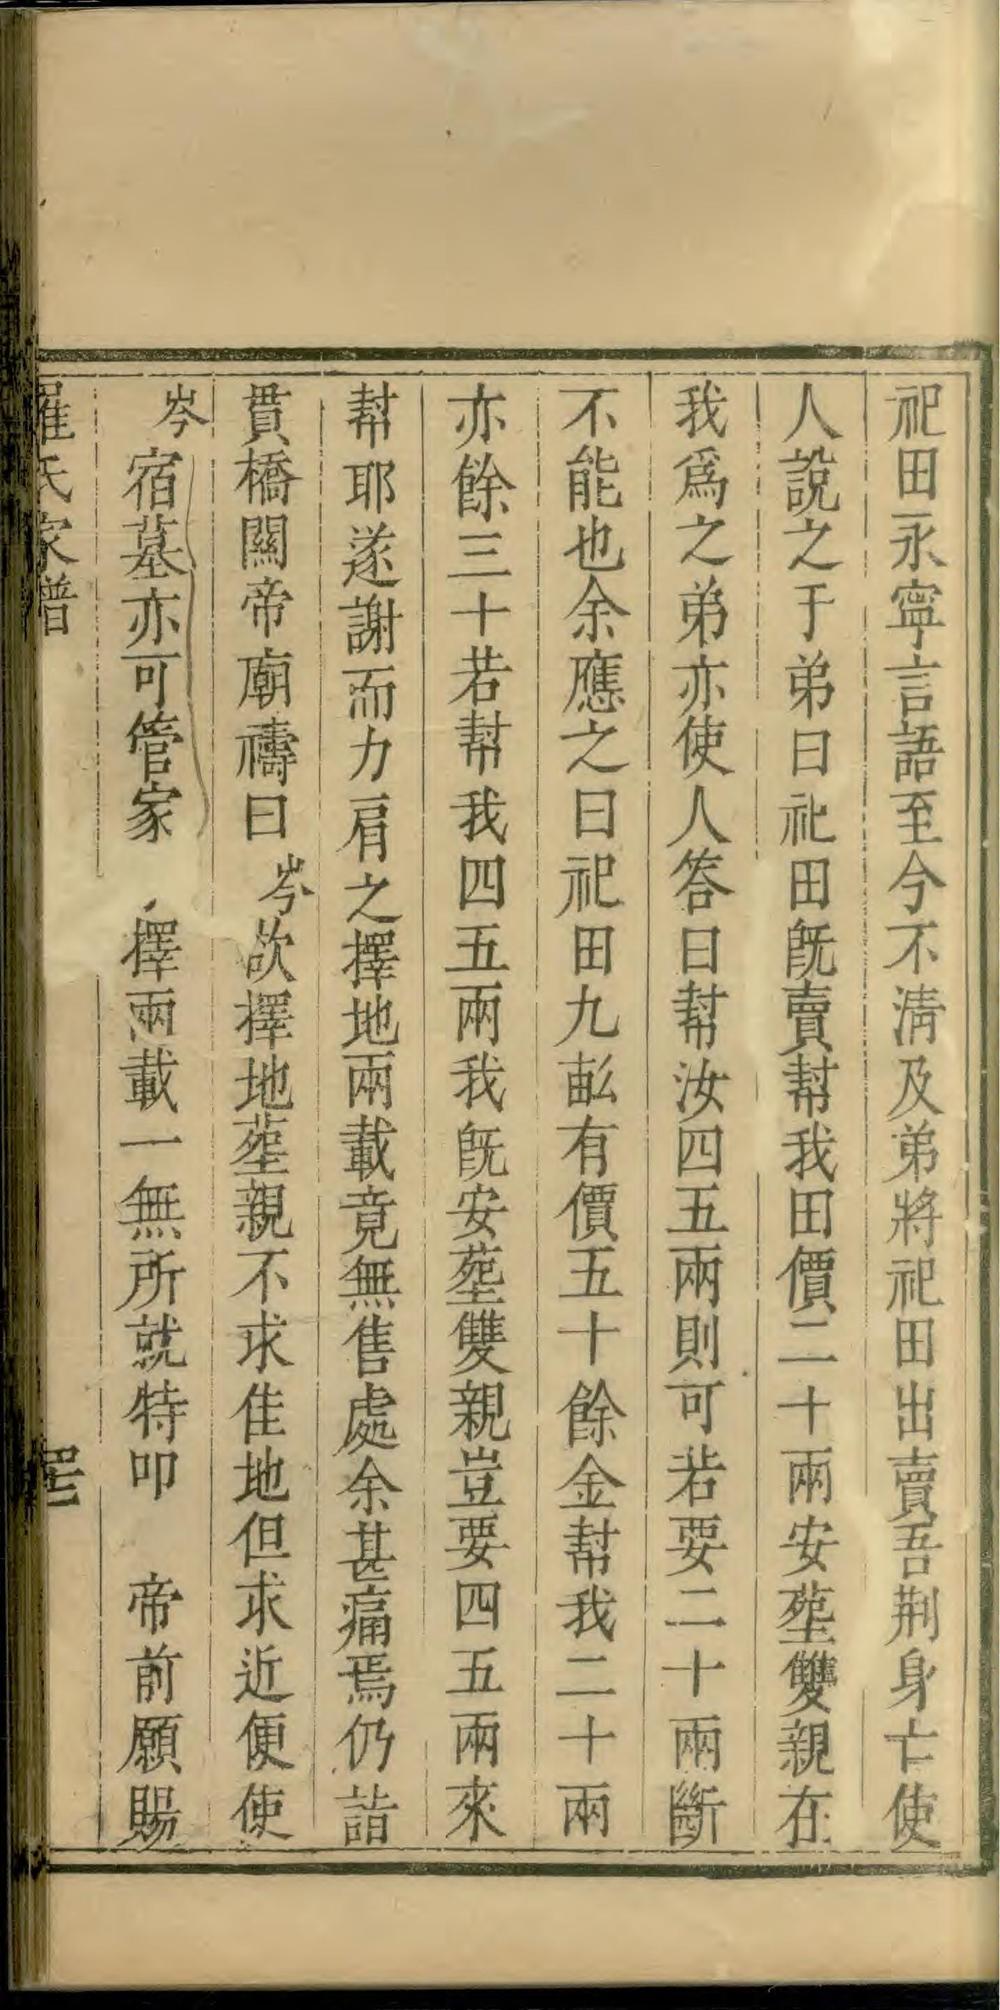 祀田永寧言語至今不清及弟將祀田出賣吾荆身亡使
人説之于弟曰祀田旣賣幫我田價二十兩安塟雙親在
我爲之弟亦使人答曰幫汝四五兩則可若要二十兩斷
不能也余應之曰祀田九畝有價五十餘金幫我二十兩
亦餘三十若幫我四五兩我旣安塟雙親豈要四五兩來
幫耶遂謝而力肩之擇地兩載竟無售處余甚痛焉仍詣
貫橋關帝廟禱曰岑欲擇地塟親不求佳地但求近便使
岑宿墓亦可管家 擇兩載一無所就特叩 帝前願賜
羅氏家譜